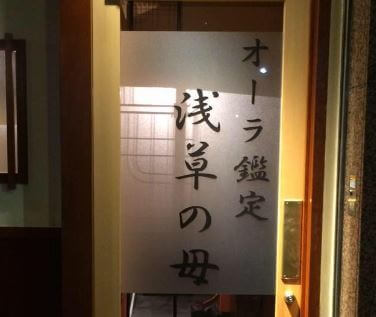 オーラ鑑定
浅草の母